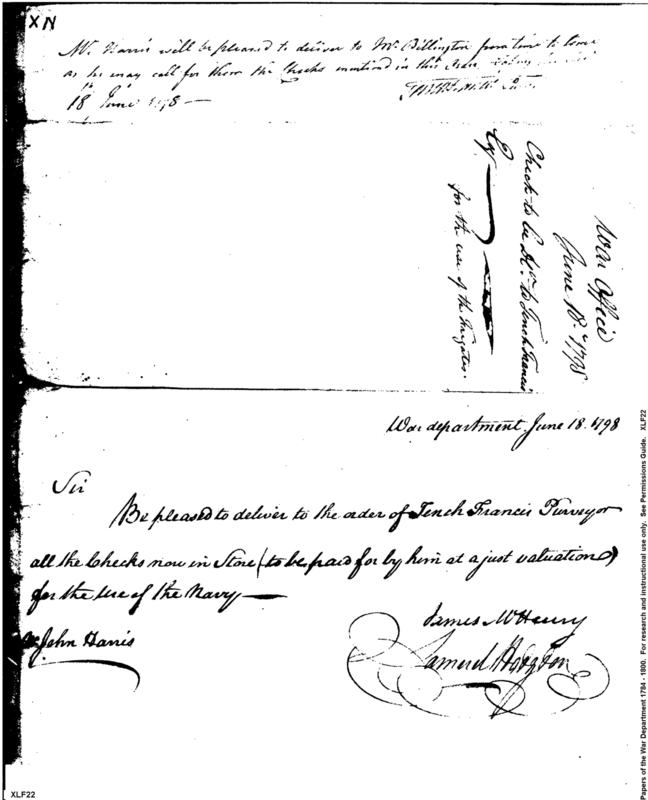 XN
Mr. Harris will be pleased to deliver to Mr. Billington from time to time
as he may call for them the Checks mentioned in this
18 June 1798 —
War Office
June 18th 1798
Check to be to Tench Francis
for the use of the Frigates.
War department, June 18. 1798
Sir
Be pleased to deliver to the order of Tench Francis Purveyor
all the Checks now in Store (to be paid for by him at a just valuation)
for the Use of the Navy —
James McHenry
Mr John Harris
Samuel Hodgdon
XLF22
Papers of the War Department 1784 - 1800. For research and instructional use only. See Permissions Guide. XLF22